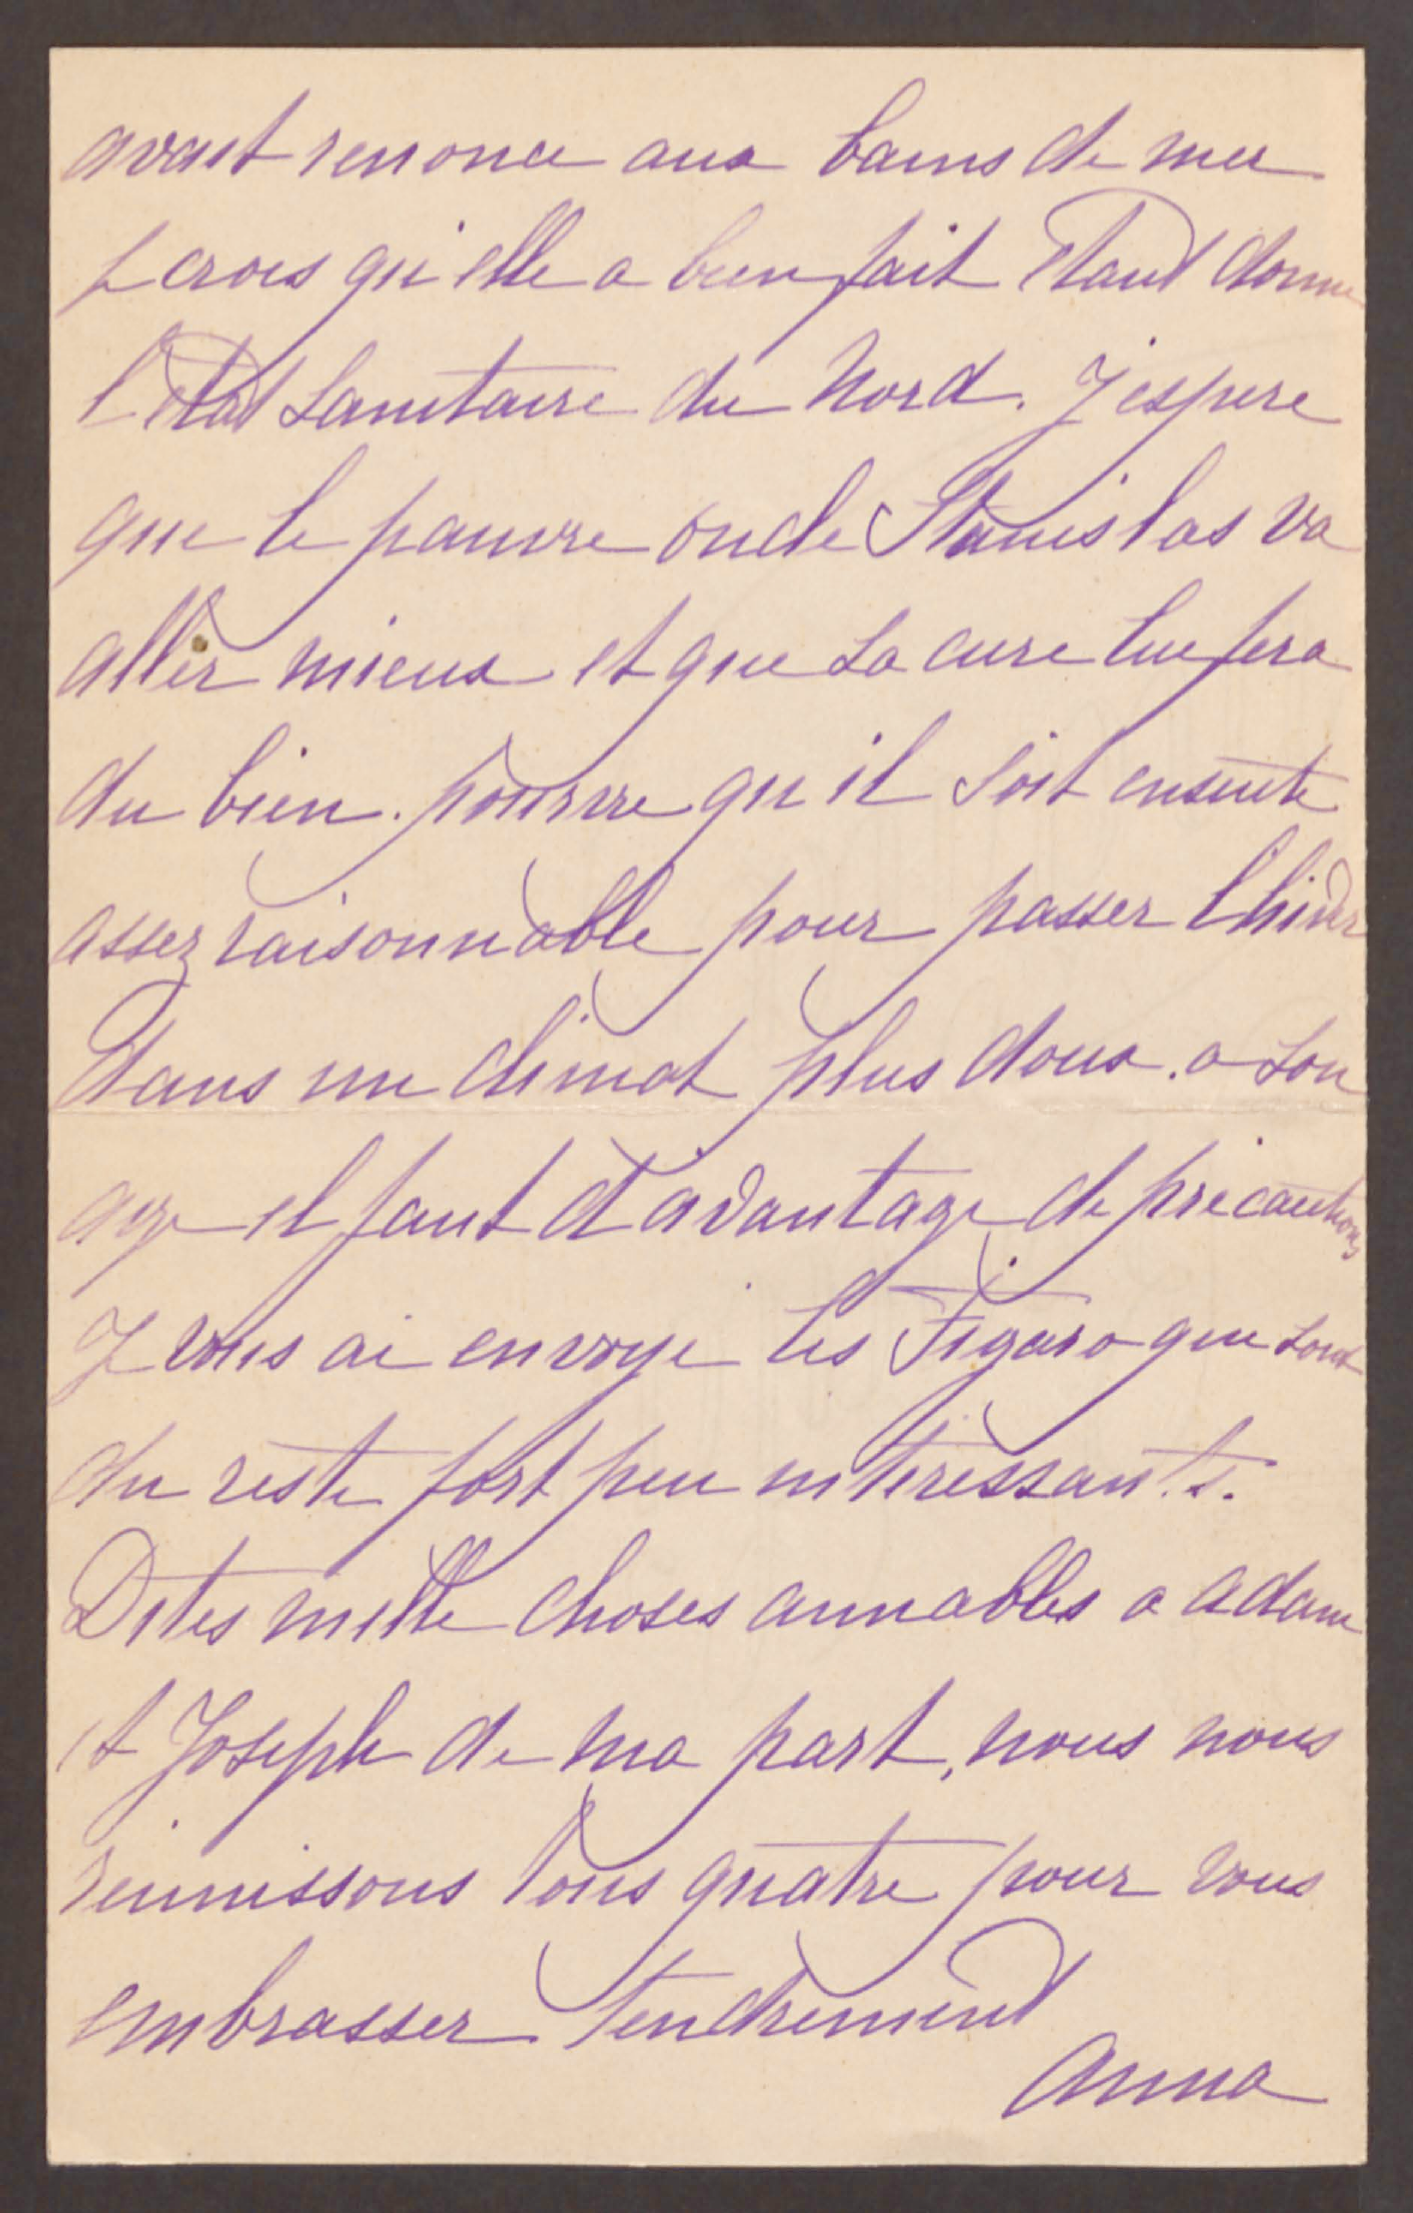 avait renoncé aux bains de mer
je crois qu'elle a bien fait étant donné
l'état sanitaire du Nord. J'espere
que le pauvre oncle Stanislas va
aller mieux et que la cure lui fera
du bien. pourvu qu'il soit ensuite
assez raisonnable pour passer l'hiver
dans un climat plus doux. a son
age il faut d'avantage de précautions
Je vous ai envoyé les Figaro qui sont
du reste fort peu intéressants.
Dites mille choses aimables a Adam
et Joseph de ma part, nous nous
réunissons tous quatre pour vous
embrasser tendrement
Anna